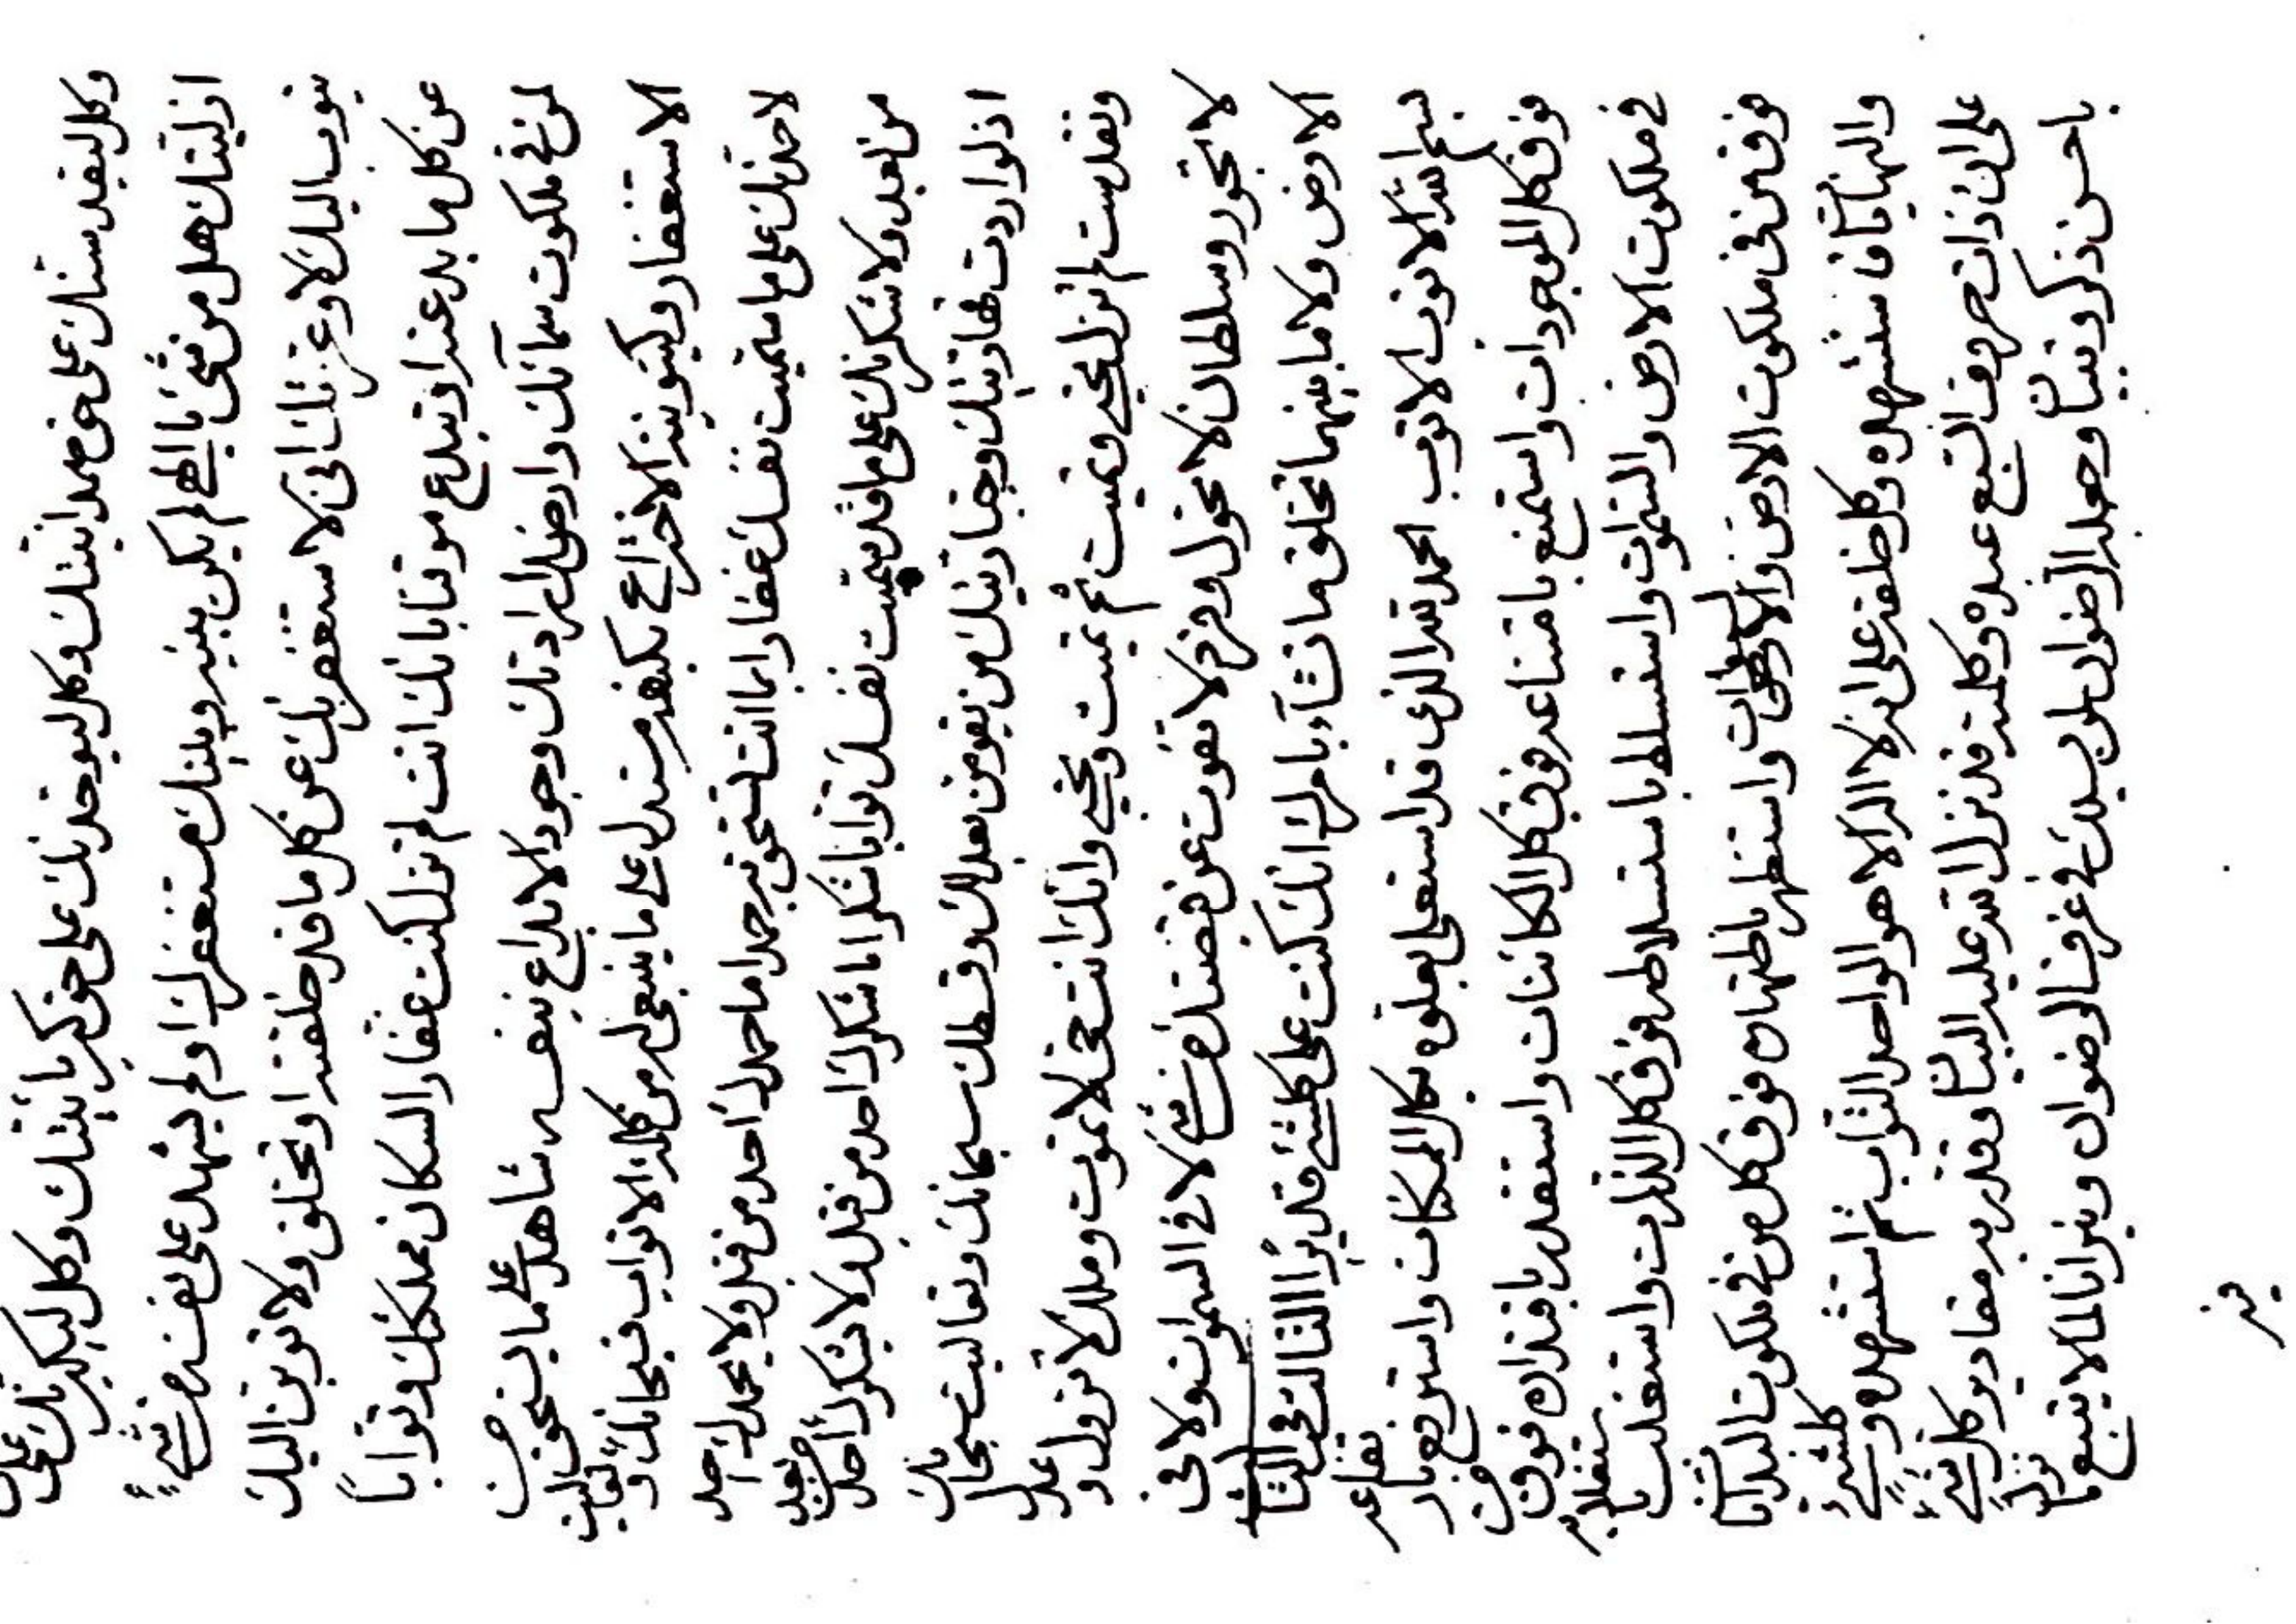 وكل ليقدسنك على حق صمدانيتك وكل ليوحدنك على حق كبريائيتك وكل ليكبرنك على
ازليتك هل من شئ يا الهي لم يكن بينه وبينك مستغفر لك او لم يشهد على نفسه من شئ
يتوب اليك لا وعزتك انى لاستغفرنك عن كل ما قد خلقته او تخلق ولاتوبن اليك
عن كل ما بدعته او تبدع موقنا بانك انت لم تزل كنت غفار السكان مملكتك وتوابا
لمن في ملكوت سمائك وارضك اراد تك وجود الابداع بنفسه شاهد على ما يستحق من
الاستغفار وكينونية الاختراع بكينونيته مستدل على ما ينبغى له من كلمة الاتواب فسبحانك وتعاليت
لاحمدنك على ما سميت نفسك غفارا بما انت تستحق به حمدا ما حمدك احد من قبل ولا يحمدك احد
من بعد ولاشكرنك على ما قد سميت نفسك توابا شكرا ما شكرك احد من قبل ولا يشكرك احد من بعد
اذ لو اردت قهاريتك وجباريتك من يقومن بعدلك وقسطك سبحانك وتعاليت سبحانك
وتقدست لم تزل تحيي وتميت ثم تميت وتحيي وانك انت حي لا تموت وملك لا تزول وعدل
لا تجور وسلطان لا تحول وفرد لا تفوت عن قبضتك من شئ لا في السموات ولا في
الارض ولا ما بينهما تخلق ما تشاء بامرك انك كنت على كلشئ قديرا الثالث في الثالث
بسم الله الاتوب الاتوب الحمد لله الذى قد استعلى بعلوه فوق كل الممكنات واسترفع بارتفاعه
فوق كل الموجودات واستمنع بامتناعه فوق كل الكائنات واستقدر باقتداره فوق من
في ملكوت الارض والسموات واستسلط باستسلاطه فوق كل الذرات واستعلى باستعلائه
فوق من في ملكوت الارض والسموات واستظهر باظهاره فوق كل من في ملكوت البدايات
والنهايات فاستشهده وكل خلقه على انه لا اله الا هو الواحد التواب ثم استشهده وكلشئ
على ان ذات حروف السبع عبده وكلمته قد نزل الله عليه البيان وقدر به مقادير كل شئ
باحسن ذكر وتبيان وجعله الرضوان لمن يسكن في غرف الرضوان وميزانا لمن لا يتبع ما نزل
فيه